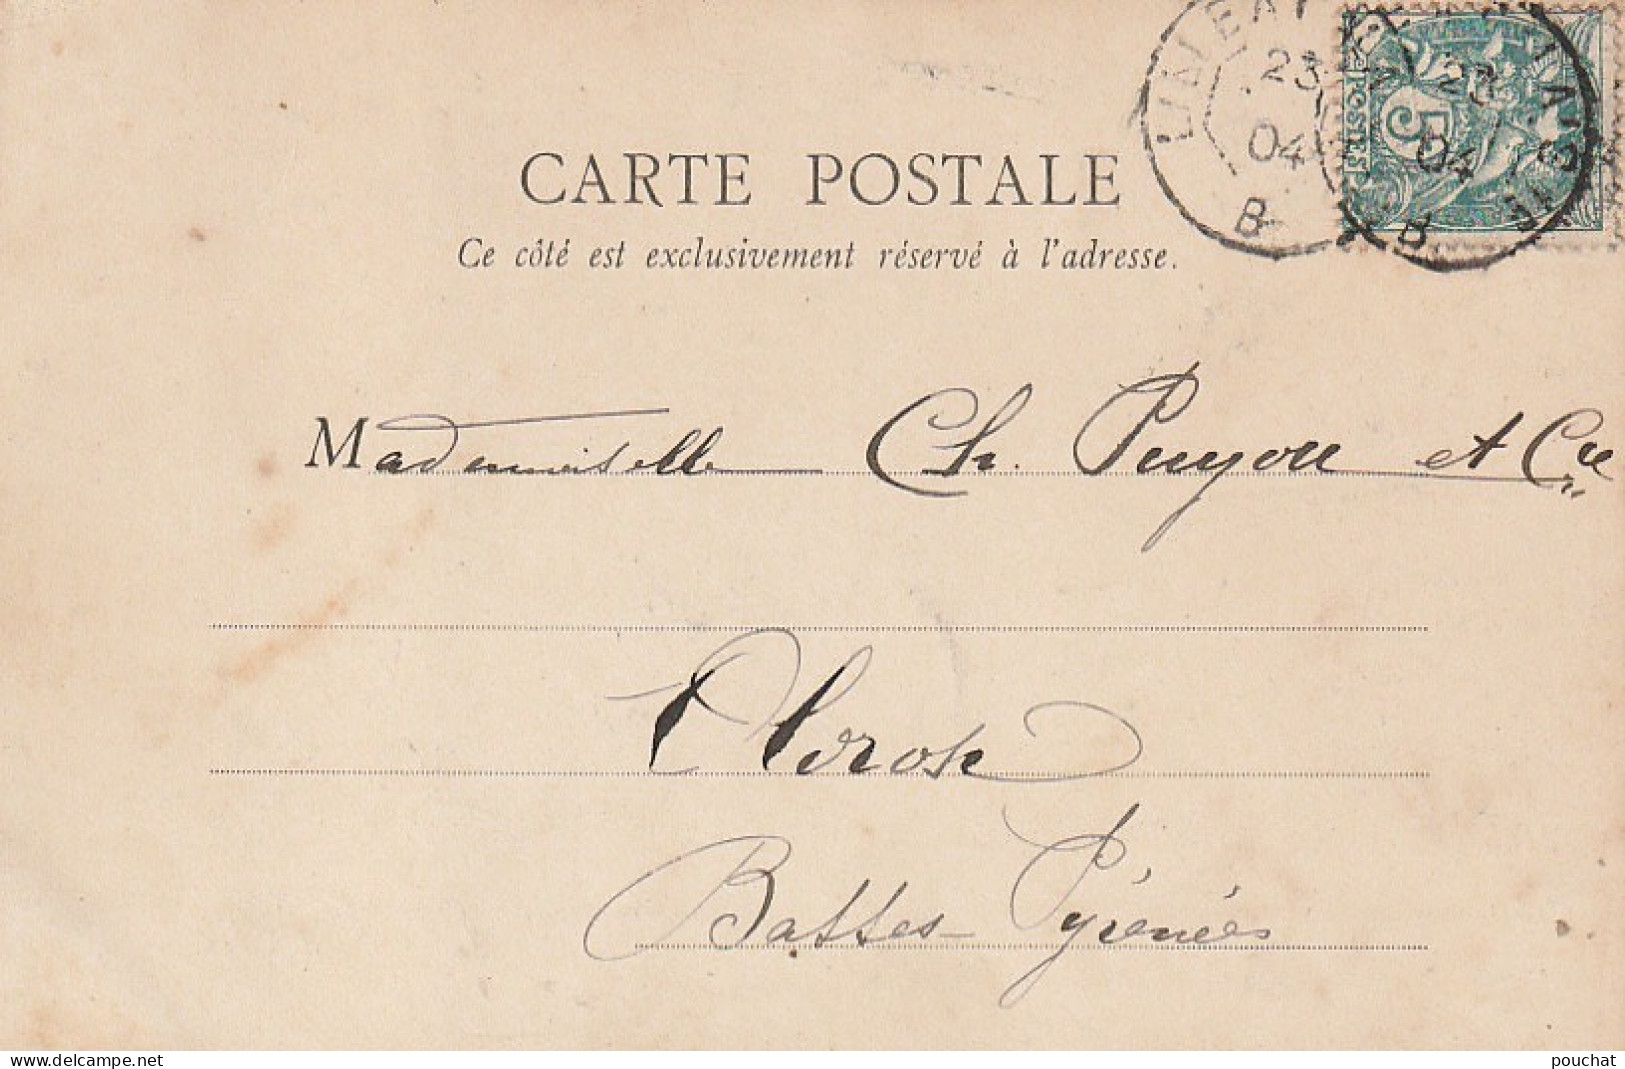 23
04
B
POSTES
5
23
04
B
CARTE POSTALE
Ce côté est exclusivement réservé à l'adresse.
Mademoiselle Ch. Puyou et Cie
Oloron
Basses-Pyrénées
www.delcampe.net
pouchat